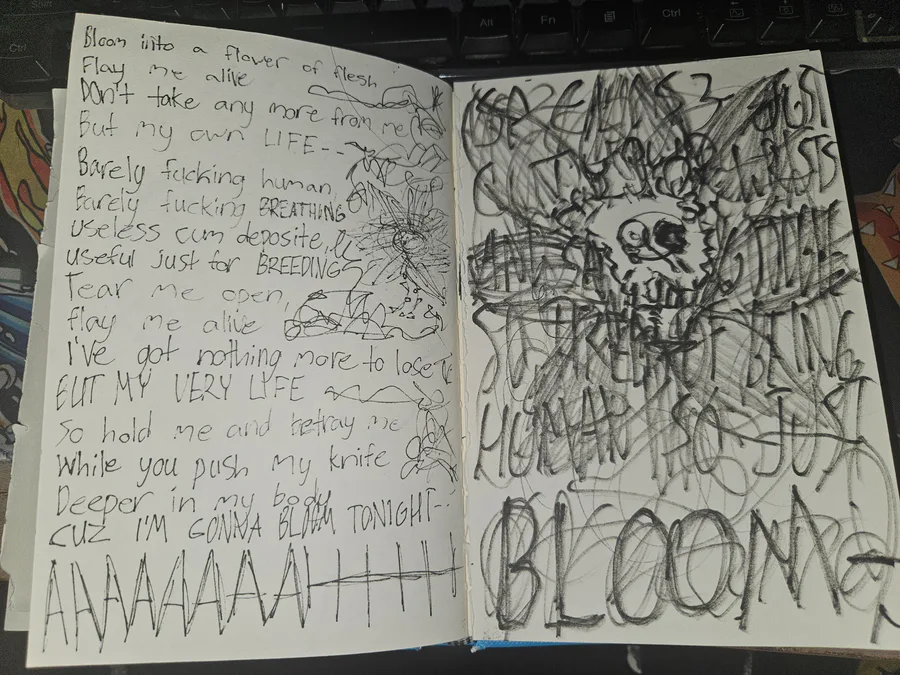 Ctrl
Alt
Fn
Ctrl
Bloom into a flower of flesh
Flay me alive
Don't take any more from me
But my own LIFE--
Barely fucking human,
Barely fucking BREATHING
useless cum deposite,
useful just for BREEDING
Tear me open,
flay me alive
I've got nothing more to lose
BUT MY VERY LIFE
So hold me and betray me
While you push my knife
Deeper in my body
CUZ I'M GONNA BLOOM TONIGHT--
AAAAAAAAHHHHH
JUST
YOUR WRISTS
OF BEING
HUMAN SO JUST
BLOOM-